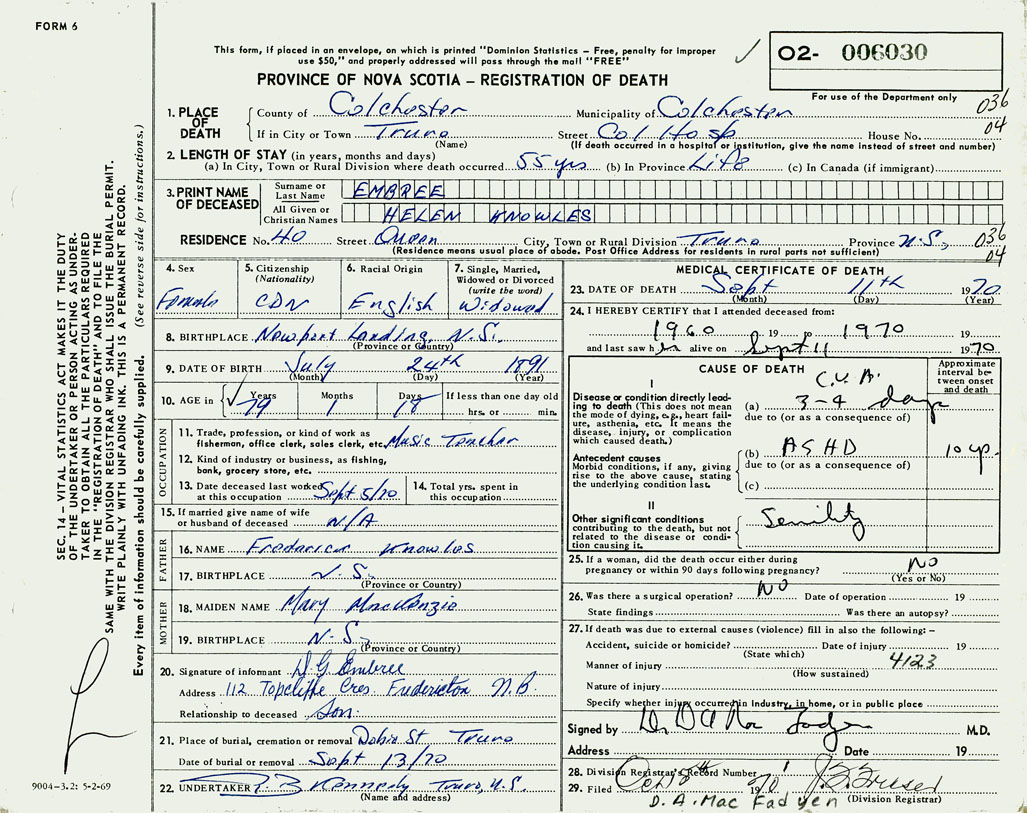 FORM 6
This form, if placed in an envelope, on which is printed "Dominion Statistics – Free, penalty for improper
use $50," and properly addressed will pass through the mail "FREE"
O2- 006030
PROVINCE OF NOVA SCOTIA – REGISTRATION OF DEATH
For use of the Department only
036
04
1. PLACE OF DEATH
County of Colchester Municipality of Colchester
If in City or Town Truro Street Col Hosp House No.
(Name) (If death occurred in a hospital or institution, give the name instead of street and number)
2. LENGTH OF STAY (in years, months and days)
(a) In City, Town or Rural Division where death occurred 55 yrs (b) In Province Life (c) In Canada (if immigrant)
3. PRINT NAME OF DECEASED
Surname or Last Name EMBREE
All Given or Christian Names HELEN KNOWLES
RESIDENCE No. 40 Street Queen City, Town or Rural Division Truro Province N.S, 036
(Residence means usual place of abode. Post Office Address for residents in rural parts not sufficient) 04
4. Sex
Female
5. Citizenship
(Nationality)
CDN
6. Racial Origin
English
7. Single, Married,
Widowed or Divorced
(write the word)
Widowed
8. BIRTHPLACE Newport Landing, N.S.
(Province or Country)
9. DATE OF BIRTH July 24th 1891
(Month) (Day) (Year)
10. AGE in
Years Months Days If less than one day old
79 1 18 hrs. or min.
OCCUPATION
11. Trade, profession, or kind of work as
fishermen, office clerk, sales clerk, etc. Music Teacher
12. Kind of industry or business, as fishing,
bank, grocery store, etc.
13. Date deceased last worked
at this occupation Sept 5/70
14. Total yrs. spent in
this occupation
15. If married give name of wife
or husband of deceased N/A
FATHER
16. NAME Frederick Knowles
17. BIRTHPLACE N.S.
(Province or Country)
MOTHER
18. MAIDEN NAME Mary MacKenzie
19. BIRTHPLACE N.S,
(Province or Country)
20. Signature of informant D.G. Embree
Address 112 Topcliffe Cres. Fredericton N.B.
Relationship to deceased Son.
21. Place of burial, cremation or removal Robie St. Truro
Date of burial or removal Sept 13/70
22. UNDERTAKER Kennedy Truro, N.S.
(Name and address)
MEDICAL CERTIFICATE OF DEATH
23. DATE OF DEATH Sept 11th 1970
(Month) (Day) (Year)
24. I HEREBY CERTIFY that I attended deceased from:
1960 19 to 1970 19
and last saw her alive on Sept 11 1970
CAUSE OF DEATH
Approximate
interval between
onset
and death
I
Disease or condition directly leading
to death (This does not mean
the mode of dying, e.g., heart failure,
asthenia, etc. It means the
disease, injury, or complication
which caused death.)
C.V.A.
(a) 3-4 days
due to (or as a consequence of)
Antecedent causes
Morbid conditions, if any, giving
rise to the above cause, stating
the underlying condition last.
(b) ASHD 10 yr.
due to (or as a consequence of)
(c)
II
Other significant conditions
contributing to the death, but not
related to the disease or condition
causing it.
Senility
25. If a woman, did the death occur either during
pregnancy or within 90 days following pregnancy? NO
(Yes or No)
26. Was there a surgical operation? NO Date of operation 19
State findings Was there an autopsy?
27. If death was due to external causes (violence) fill in also the following: –
Accident, suicide or homicide? Date of injury 19
(State which)
Manner of injury 4123
(How sustained)
Nature of injury
Specify whether injury occurred in Industry, in home, or in public place
Signed by Dr D A MacFadyen M.D.
Address Date 19
28. Division Registrar's Record Number
29. Filed Oct 1970 J. Fraser
(Division Registrar)
D. A. Mac Fadyen
SEC. 14 – VITAL STATISTICS ACT MAKES IT THE DUTY
OF THE UNDERTAKER OR PERSON ACTING AS UNDERTAKER
TO OBTAIN ALL THE PARTICULARS REQUIRED
IN THE "REGISTRATION OF DEATH" AND TO FILE THE
SAME WITH THE DIVISION REGISTRAR WHO SHALL ISSUE THE BURIAL PERMIT.
WRITE PLAINLY WITH UNFADING INK. THIS IS A PERMANENT RECORD.
Every item of information should be carefully supplied. (See reverse side for instructions.)
9004-3.2: 5-2-69